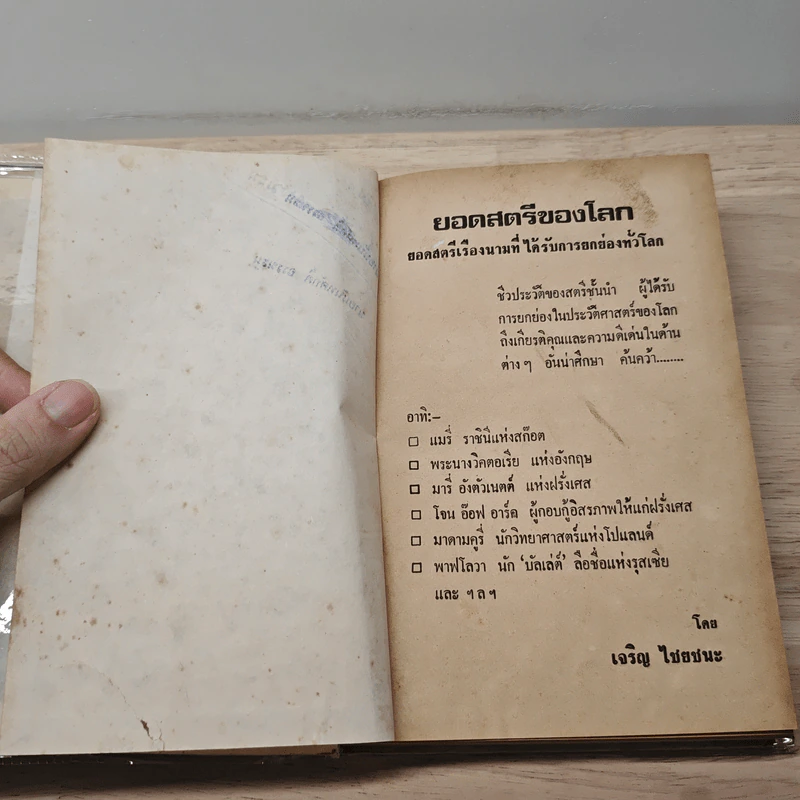 ยอดสตรีของโลก
ยอดสตรีเรืองนามที่ได้รับการยกย่องทั่วโลก
ชีวประวัติของสตรีชั้นนำ ผู้ได้รับ
การยกย่องในประวัติศาสตร์ของโลก
ถึงเกียรติคุณและความดีเด่นในด้าน
ต่าง ๆ อันน่าศึกษา ค้นคว้า........
อาทิ:–
แมรี่ ราชินีแห่งสก๊อต
พระนางวิคตอเรีย แห่งอังกฤษ
มารี อังตัวเนตต์ แห่งฝรั่งเศส
โจน อ๊อฟ อาร์ค ผู้กอบกู้อิสรภาพให้แก่ฝรั่งเศส
มาดามคูรี่ นักวิทยาศาสตร์แห่งโปแลนด์
พาฟโลวา นัก ‘บัลเล่ต์’ ลือชื่อแห่งรุสเซีย
และ ฯลฯ
โดย
เจริญ ไชยชนะ